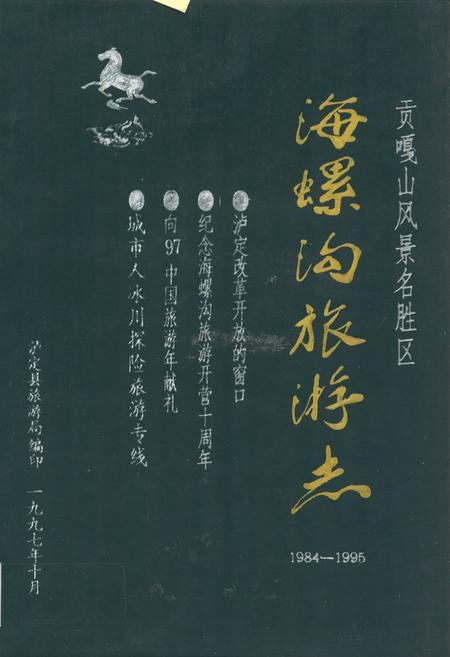 贡嘎山风景名胜区
海螺沟旅游志
1984—1995
泸定改革开放的窗口
纪念海螺沟旅游开营十周年
向97中国旅游年献礼
城市人冰川探险旅游专线
泸定县旅游局编印 一九九七年十月